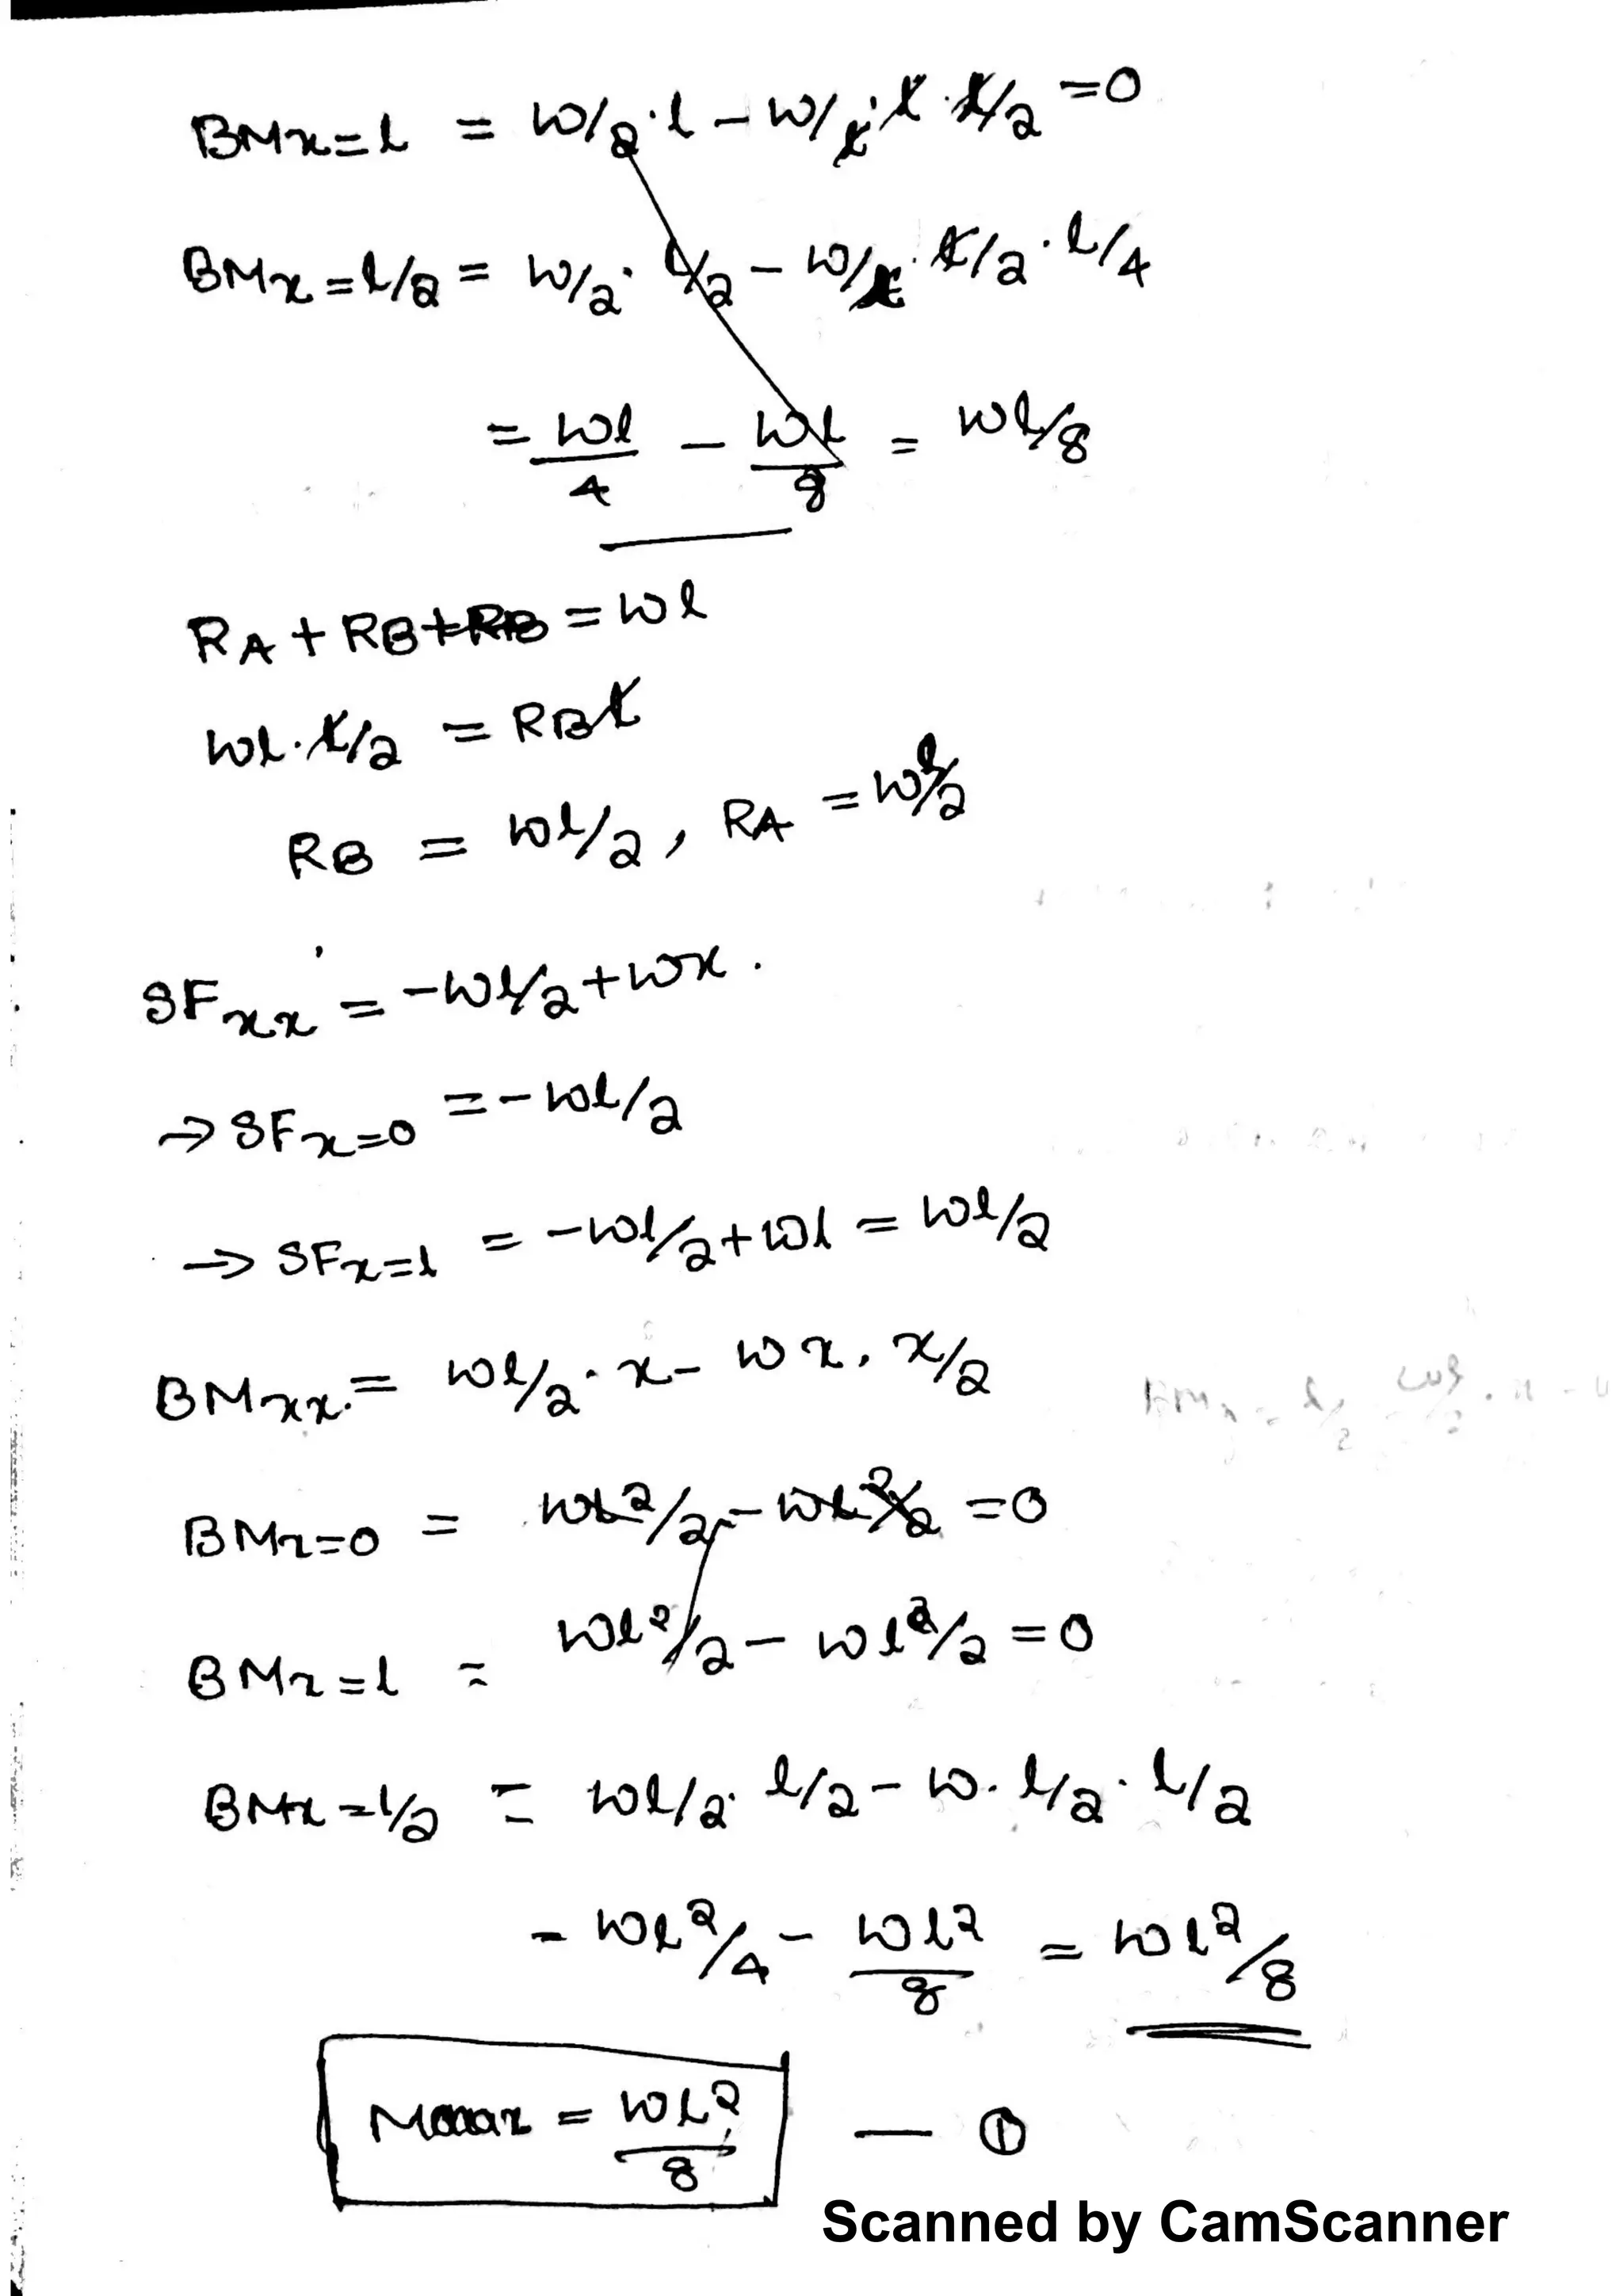 BMx=l = W/2·l - W/l·l·l/2 = 0
BMx=l/2 = W/2·l/2 - W/l·l/2·l/4
= Wl/4 - Wl/8 = Wl/8
RA + RB+RB = Wl
Wl·l/2 = RBl
RB = Wl/2, RA = Wl/2
SFxx = -Wl/2+Wx.
→ SFx=0 = -Wl/2
→ SFx=l = -Wl/2+Wl = Wl/2
BMxx. = Wl/2·x - Wx.x/2
BMx=0 = Wl2/2 - Wl2/2 = 0
BMx=l = Wl2/2 - Wl2/2 = 0
BMx=l/2 = Wl/2·l/2 - W·l/2·l/2
= Wl2/4 - Wl2/8 = Wl2/8
Mmax = Wl2/8 — ①
Scanned by CamScanner